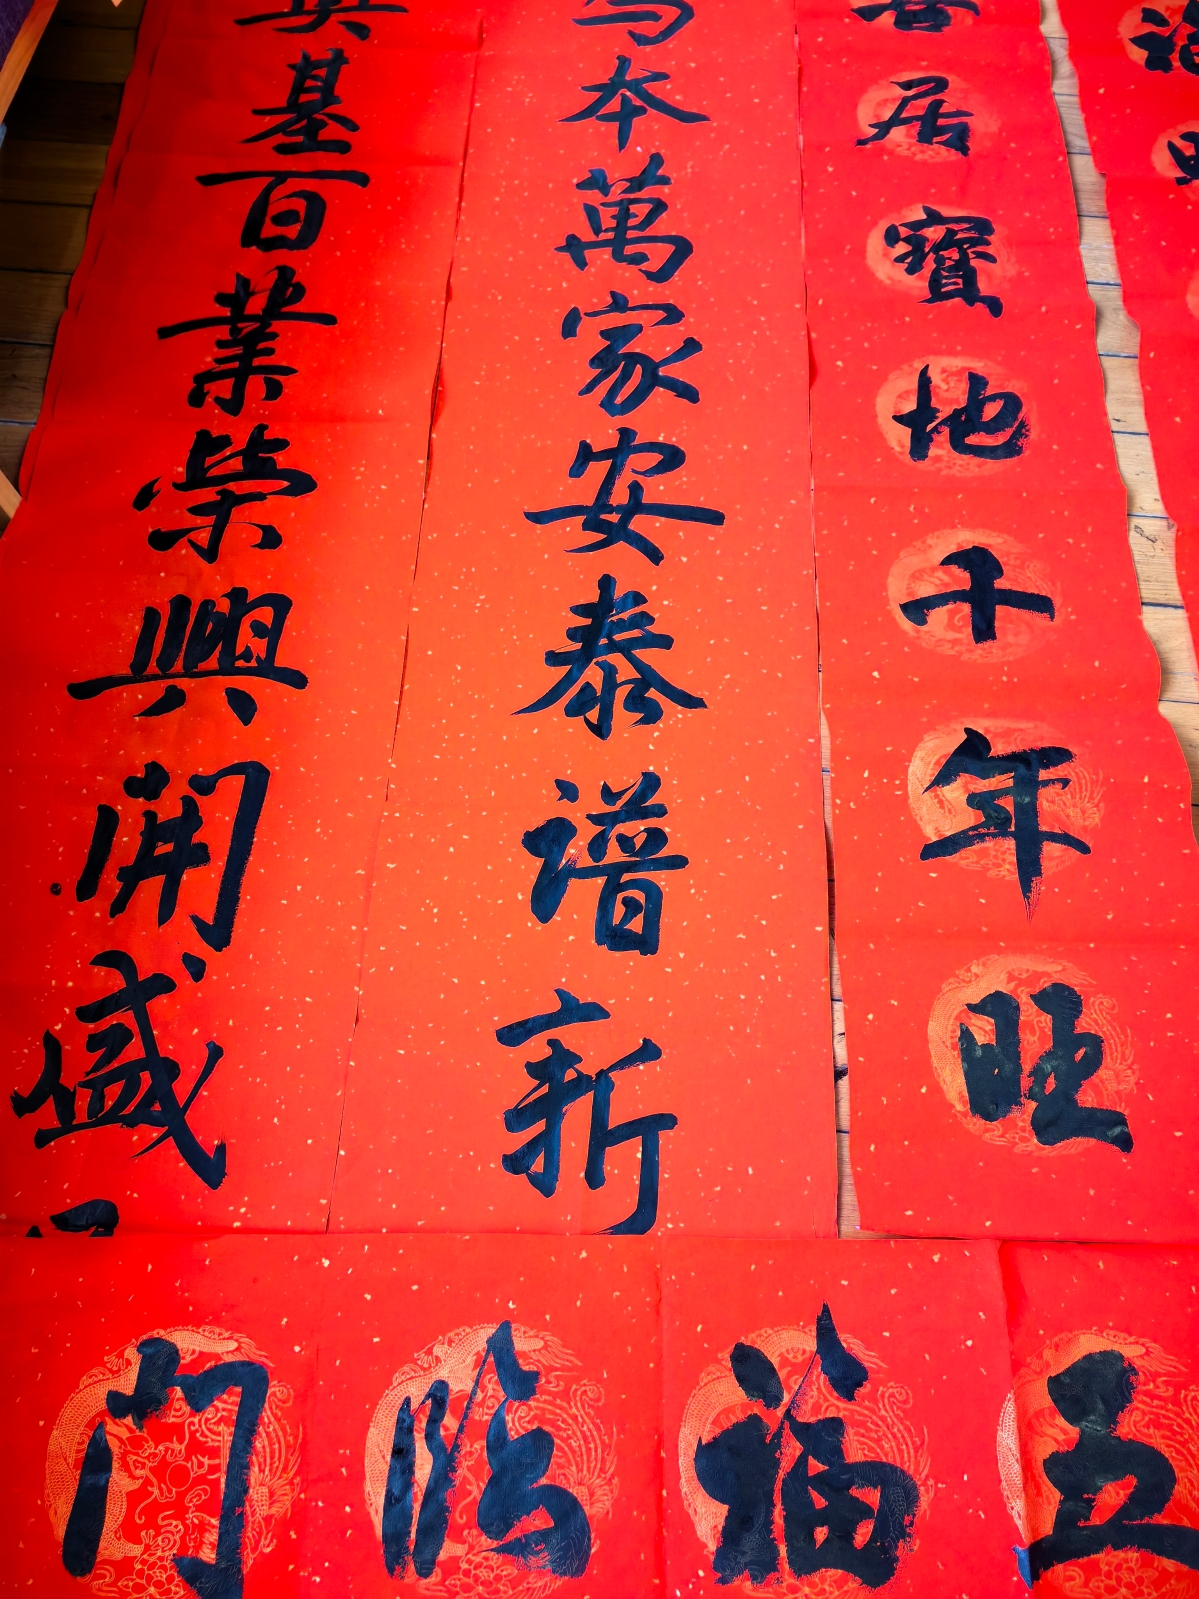 福
喜居寶地千年旺
本萬家安泰譜新
基百業榮興開盛
五福臨門